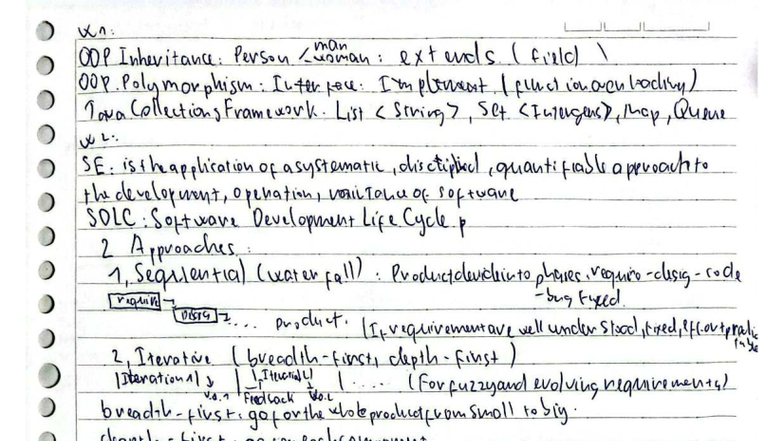 W1:
OOP Inheritance: Person / man woman: extends (field)
OOP. Polymorphism: Interface: Implement (function overloading)
Java Collections Framework. List <String>, Set <Intergers>, Map, Queue
W2:
SE: is the application of a systematic, disciplied, quantifiable approach to
the development, operation, of software
SDLC: Software Development Life Cycle.
2 Approaches:
1, Sequential (waterfall): Product devide into phases. require-desig-code
-bug fixed.
require
Desig
... product. (If requirement are well understood, fixed,
2, Iterative (breadth-first, depth-first)
|Iteration 1| | Iteration 2 | .... (For fuzzy and evolving requirements)
v.0.1 Feedback v.0.2
breadth-first: go for the whole product from small to big.